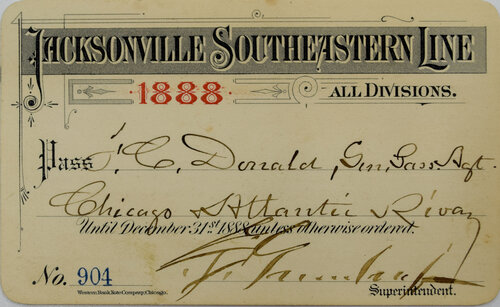 JACKSONVILLE SOUTHEASTERN LINE
1888 ALL DIVISIONS.
Pass C. Donald, Gen. Pass. Agt.
Chicago & Atlantic
Until December 31st 1888 unless otherwise ordered.
No. 904
Western Bank Note Company, Chicago. Superintendent.